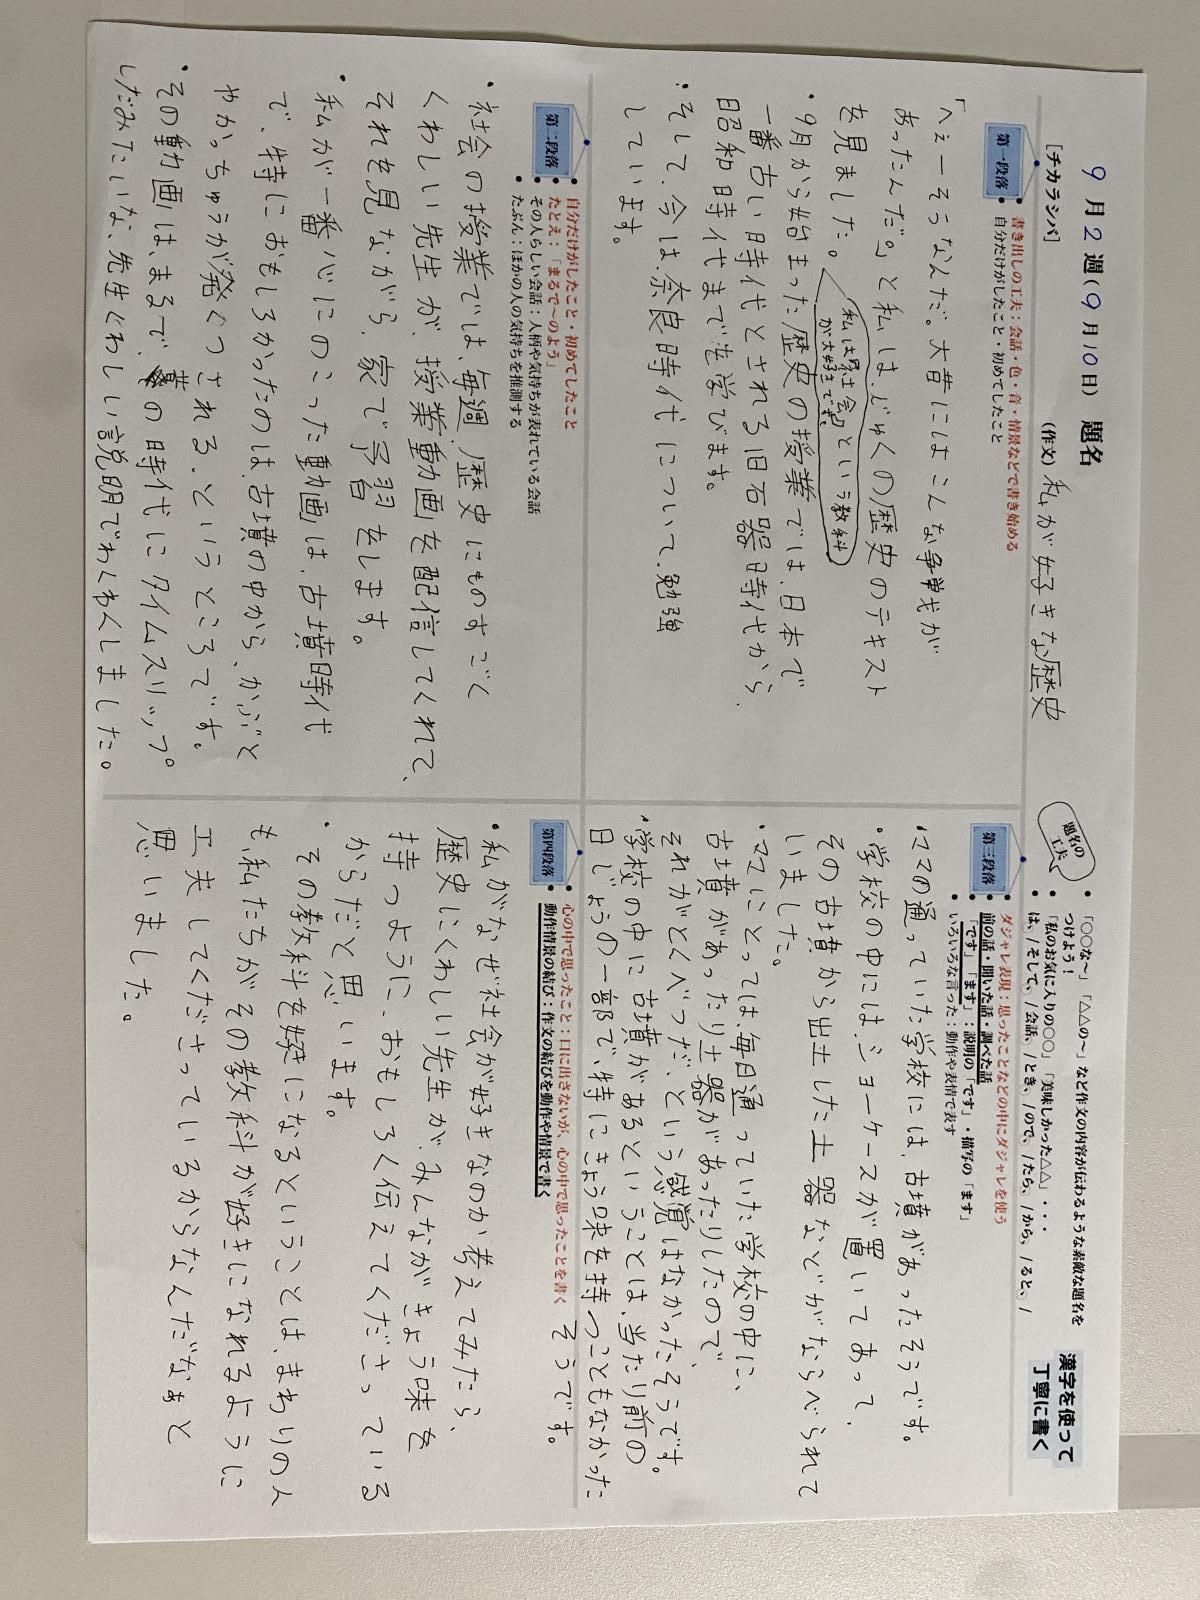 9月2週(9月10日) 題名
(作文) 私が好きな歴史
[チカラシバ]
第一段落
書き出しの工夫:会話・色・音・情景などで書き始める
自分だけがしたこと・初めてしたこと
「へぇーそうなんだ。大昔にはこんな争戦が
あったんだ。」と私は、じゅくの歴史のテキスト
を見ました。
私は「社会」という教科
が大好きです。
・9月から始まった歴史の授業では、日本で
一番古い時代とされる旧石器時代から、
昭和時代までを学びます。
・そして、今は、奈良時代について、勉強
しています。
第二段落
自分だけがしたこと・初めてしたこと
たとえ:「まるで〜のよう」
その人らしい会話:人柄や気持ちが表れている会話
たぶん:ほかの人の気持ちを推測する
・社会の授業では、毎週、歴史にものすごく
くわしい先生が、授業動画を配信してくれて、
それを見ながら、家で予習をします。
・私が一番心にのこった動画は、古墳時代
で、特におもしろかったのは、古墳の中から、かぶと
やかっちゅうが発くつされる、というところです。
・その動画は、まるで、昔の時代にタイムスリップ
したみたいな、先生くわしい説明でわくわくしました。
題名の
工夫
・「○○な〜」「△△の〜」など作文の内容が伝わるような素敵な題名を
つけよう!
・「私のお気に入りの○○」「美味しかった△△」・・・
は、/そして、/会話、/とき、/ので、/たら、/から、/ると、/
漢字を使って
丁寧に書く
第三段落
ダジャレ表現:思ったことなどの中にダジャレを使う
前の話・聞いた話・調べた話
「です」「ます」:説明の「です」・描写の「ます」
いろいろな言った:動作や表情で表す
・ママの通っていた学校には、古墳があったそうです。
・学校の中には、ショーケースが置いてあって、
その古墳から出土した土器などがならべられて
いました。
・ママにとっては、毎日通っていた学校の中に、
古墳があったり土器があったりしたので、
それがとくべつだ、という感覚はなかったそうです。
・学校の中に古墳があるということは、当たり前の
日じょうの一部で、特にきょう味を持つこともなかった
そうです。
第四段落
心の中で思ったこと:口に出さないが、心の中で思ったことを書く
動作情景の結び:作文の結びを動作や情景で書く
・私がなぜ社会が好きなのか考えてみたら、
歴史にくわしい先生が、みんながきょう味を
持つように、おもしろく伝えてくださっている
からだと思います。
・その教科を好きになるということは、まわりの人
も、私たちがその教科が好きになれるように
工夫してくださっているからなんだなぁと
思いました。